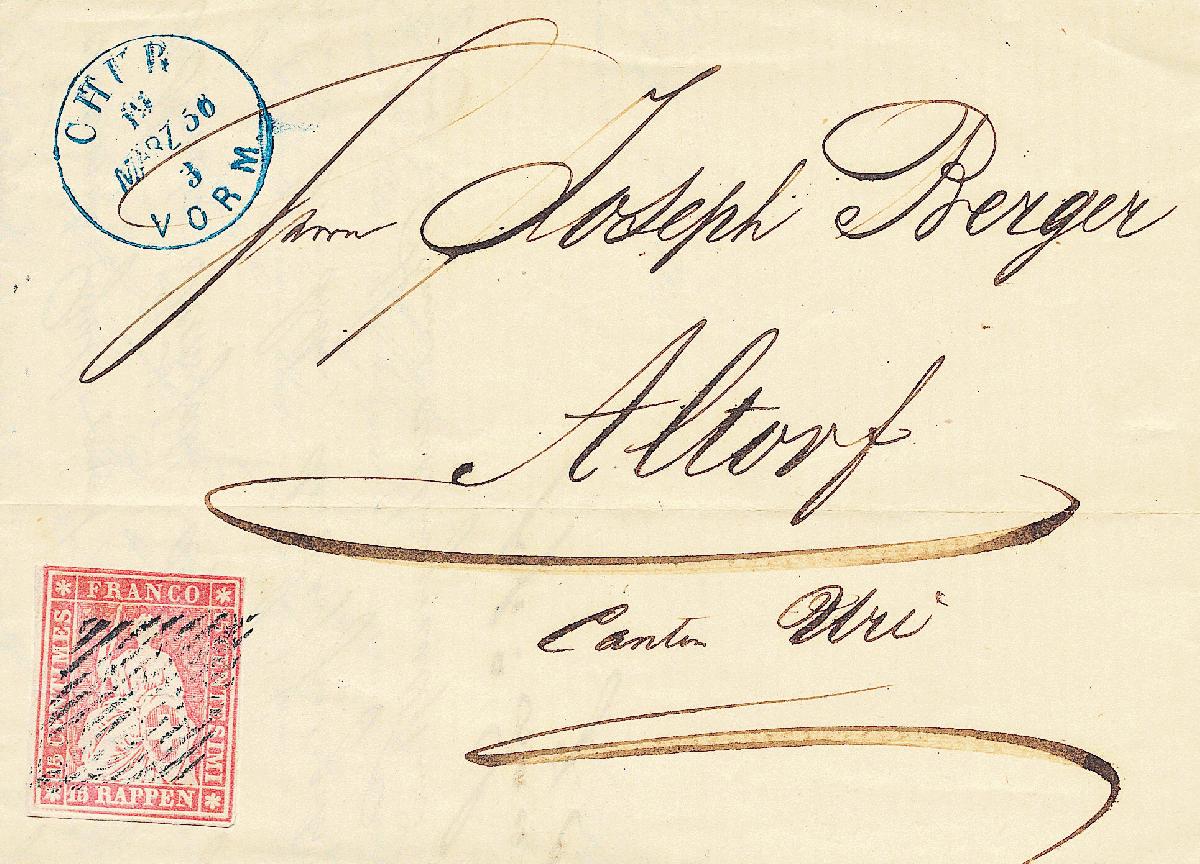 CHUR
19
MÄRZ 56
3
VORM.
Herrn Joseph Berger
Altorf
Canton Uri
FRANCO
15 CENTIMES
CENTESIMI
15 RAPPEN